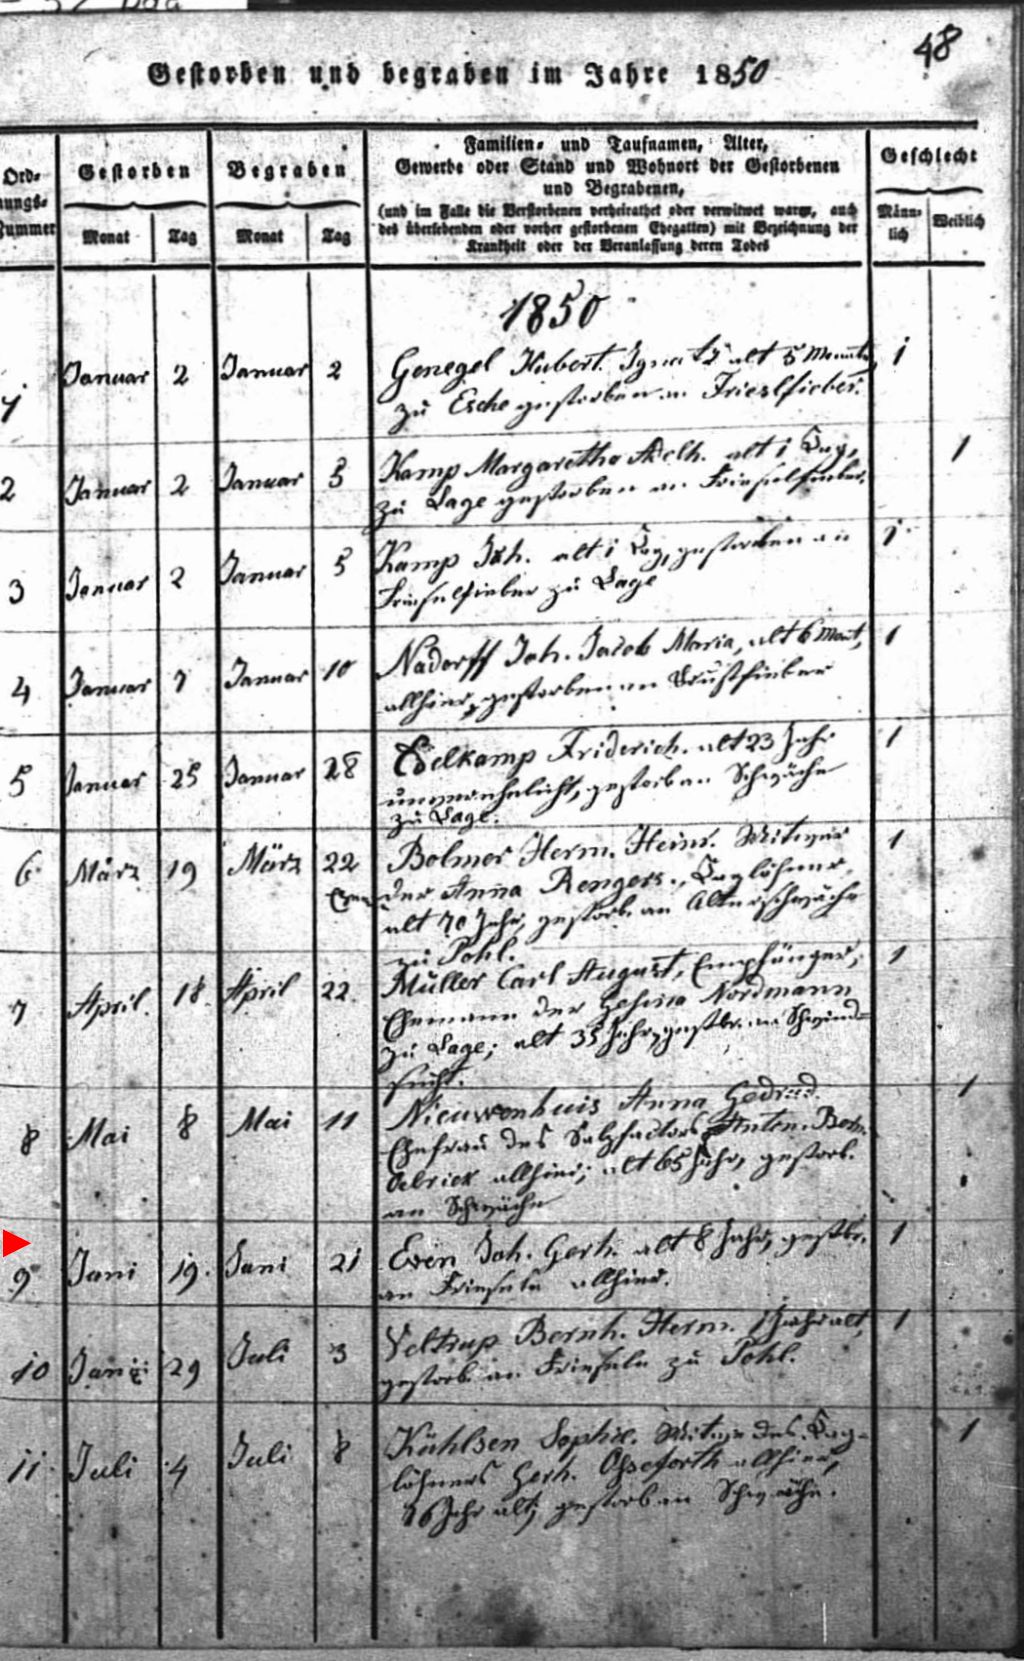 48
Gestorben und begraben im Jahre 1850
Ord-
nungs-
Nummer
Gestorben
Begraben
Monat Tag Monat Tag
Familien- und Taufnamen, Alter,
Gewerbe oder Stand und Wohnort der Gestorbenen
und Begrabenen,
(und im Falle die Verstorbenen verheirathet oder verwitwet waren, auch
des überlebenden oder vorher gestorbenen Ehegatten) mit Bezeichnung der
Krankheit oder der Veranlassung deren Todes
Geschlecht
Männ-
lich
Weiblich
1850
1 Januar 2 Januar 2 Genegel Hubert. Ignatz alt 5 Monate, 1
zu Esche gestorben an Frieslfieber.
2 Januar 2 Januar 5 Kamp Margaretha Adelh. alt 1 Tag, 1
zu Lage gestorben an Frieselfieber.
3 Januar 2 Januar 5 Kamp Joh. alt 1 Tag, gestorben an 1
Frieselfieber zu Lage
4 Januar 7 Januar 10 Nadorff Joh. Jacob Maria, alt 6 Monat, 1
allhier, gestorben an Brustfieber
5 Januar 25 Januar 28 Eselkamp Friderich. alt 23 Jahr 1
unverehelicht, gestorb an Schwäche
zu Lage.
6 März 19 März 22 Bolmer Herm. Heinr. Witwer 1
der Anna Rengers., Taglöhner,
alt 70 Jahr, gestorb. an Altersschwäche
zu Pohl.
7 April. 18. April 22. Müller Carl August, Empfänger, 1
Ehemann der Gesina Nordmann
zu Lage; alt 35 Jahr, gestbr. an Schwind=
sucht.
8 Mai 8 Mai 11 Nieuwenhuis Anna Gedrud. 1
Ehefrau des Salzfactors Anton. Bern.
Oelrick allhier; alt 65 Jahr, gestorb.
an Schwäche
9 Juni 19. Juni 21 Even Joh. Gerh. alt 8 Jahr, gestbr. 1
an Frieseln allhier.
10 Juni 29 Juli 3 Veltrup Bernh. Herm. 1 Jahr alt, 1
gestorb. an Frieseln zu Pohl.
11. Juli 4 Juli 8 Kühlsen Sophie. Witwe des Tag- 1
löhners Gerh. Osseforth allhier,
Jahr alt; gestorb an Schwäche.